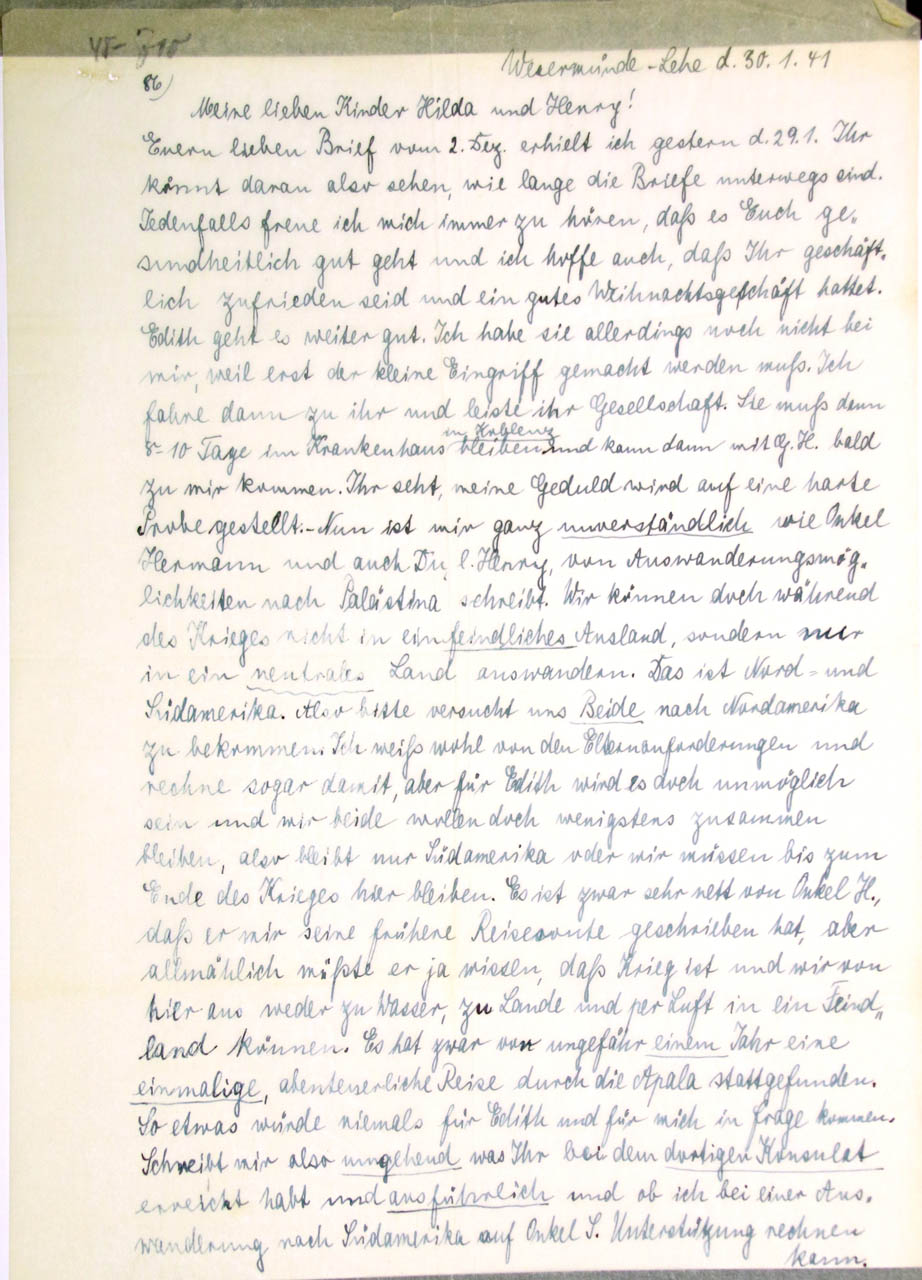 Wesermünde-Lehe d. 30.1.41
86)
Meine lieben Kinder Hilda und Henry!
Euern lieben Brief vom 2. Dez. erhielt ich gestern d. 29.1. Ihr
könnt daran also sehen, wie lange die Briefe unterwegs sind.
Jedenfalls freue ich mich immer zu hören, daß es Euch ge-
sundheitlich gut geht und ich hoffe auch, daß Ihr geschäft-
lich zufrieden seid und ein gutes Weihnachtsgeschäft hattet.
Edith geht es weiter gut. Ich habe sie allerdings noch nicht bei
mir, weil erst der kleine Eingriff gemacht werden muß. Ich
fahre dann zu ihr und leiste ihr Gesellschaft. Sie muß dann
in Koblenz
8-10 Tage im Krankenhaus bleiben und kann dann mit G. H. bald
zu mir kommen. Ihr seht, meine Geduld wird auf eine harte
Probe gestellt.- Nun ist mir ganz unverständlich wie Onkel
Hermann und auch Du, l. Henry, von Auswanderungsmög-
lichkeiten nach Palästina schreibt. Wir können doch während
des Krieges nicht in ein feindliches Ausland, sondern nur
in ein neutrales Land auswandern. Das ist Nord- und
Südamerika. Also bitte versucht uns Beide nach Nordamerika
zu bekommen. Ich weiß wohl von den Elternanforderungen und
rechne sogar damit, aber für Edith wird es doch unmöglich
sein und wir beide wollen doch wenigstens zusammen
bleiben, also bleibt nur Südamerika oder wir müssen bis zum
Ende des Krieges hier bleiben. Es ist zwar sehr nett von Onkel H.,
daß er mir seine frühere Reiseroute geschrieben hat, aber
allmählich müßte er ja wissen, daß Krieg ist und wir von
hier aus weder zu Wasser, zu Lande und per Luft in ein Feind-
land können. Es hat zwar vor ungefähr einem Jahr eine
einmalige, abenteuerliche Reise durch die Apala stattgefunden.
So etwas würde niemals für Edith und für mich in Frage kommen.
Schreibt mir also umgehend was Ihr bei dem dortigen Konsulat
erreicht habt und ausführlich und ob ich bei einer Aus-
wanderung nach Südamerika auf Onkel S. Unterstützung rechnen
kann.